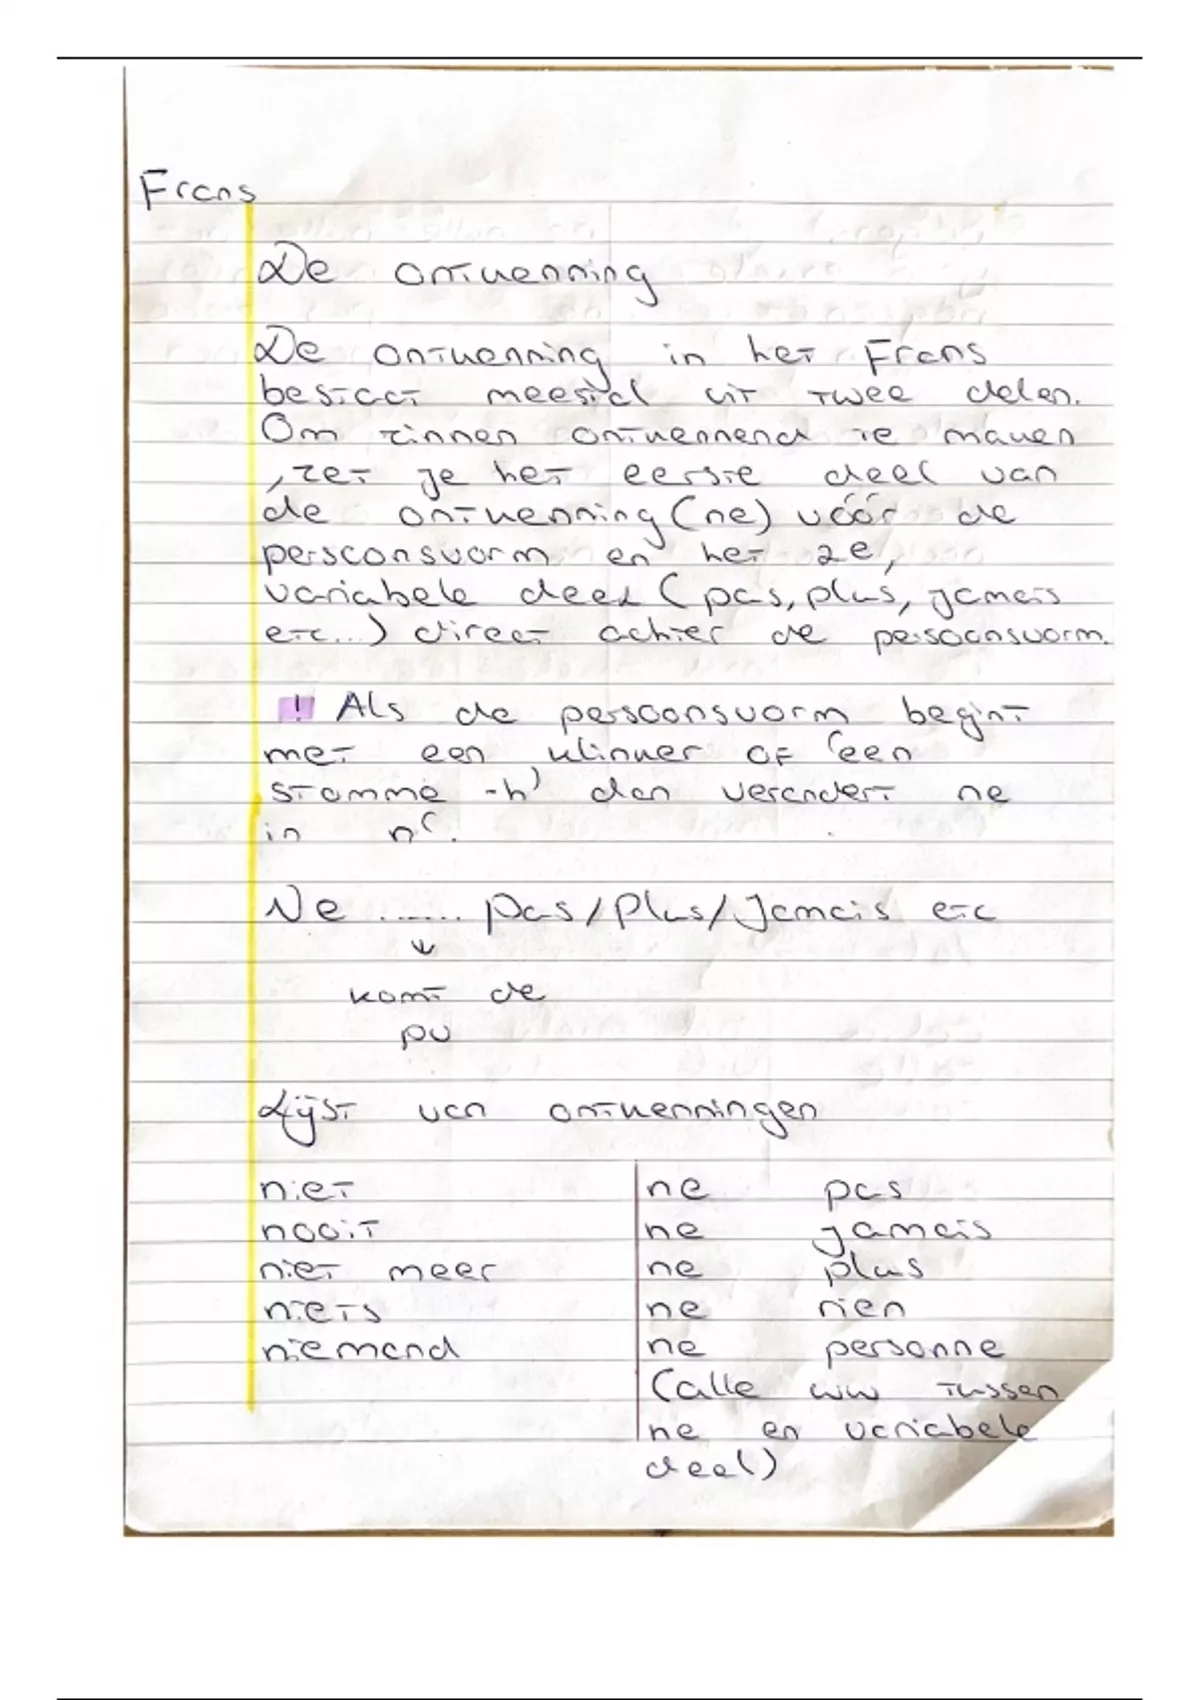 Frans
De ontkenning
De ontkenning in het Frans
bestaat meestal uit twee delen.
Om zinnen ontkennend te maken
, zet je het eerste deel van
de ontkenning (ne) vóór de
persoonsvorm en het 2e,
variabele deel (pas, plus, jamais
etc...) direct achter de persoonsvorm.
! Als de persoonsvorm begint
met een klinker of 'een
stomme -h' dan verandert ne
in n'.
Ne ...... pas/plus/jamais etc
↓
komt de
pv
Lijst van ontkenningen
niet ne pas
nooit ne jamais
niet meer ne plus
niets ne rien
niemand ne personne
(alle ww tussen
ne en variabele
deel)